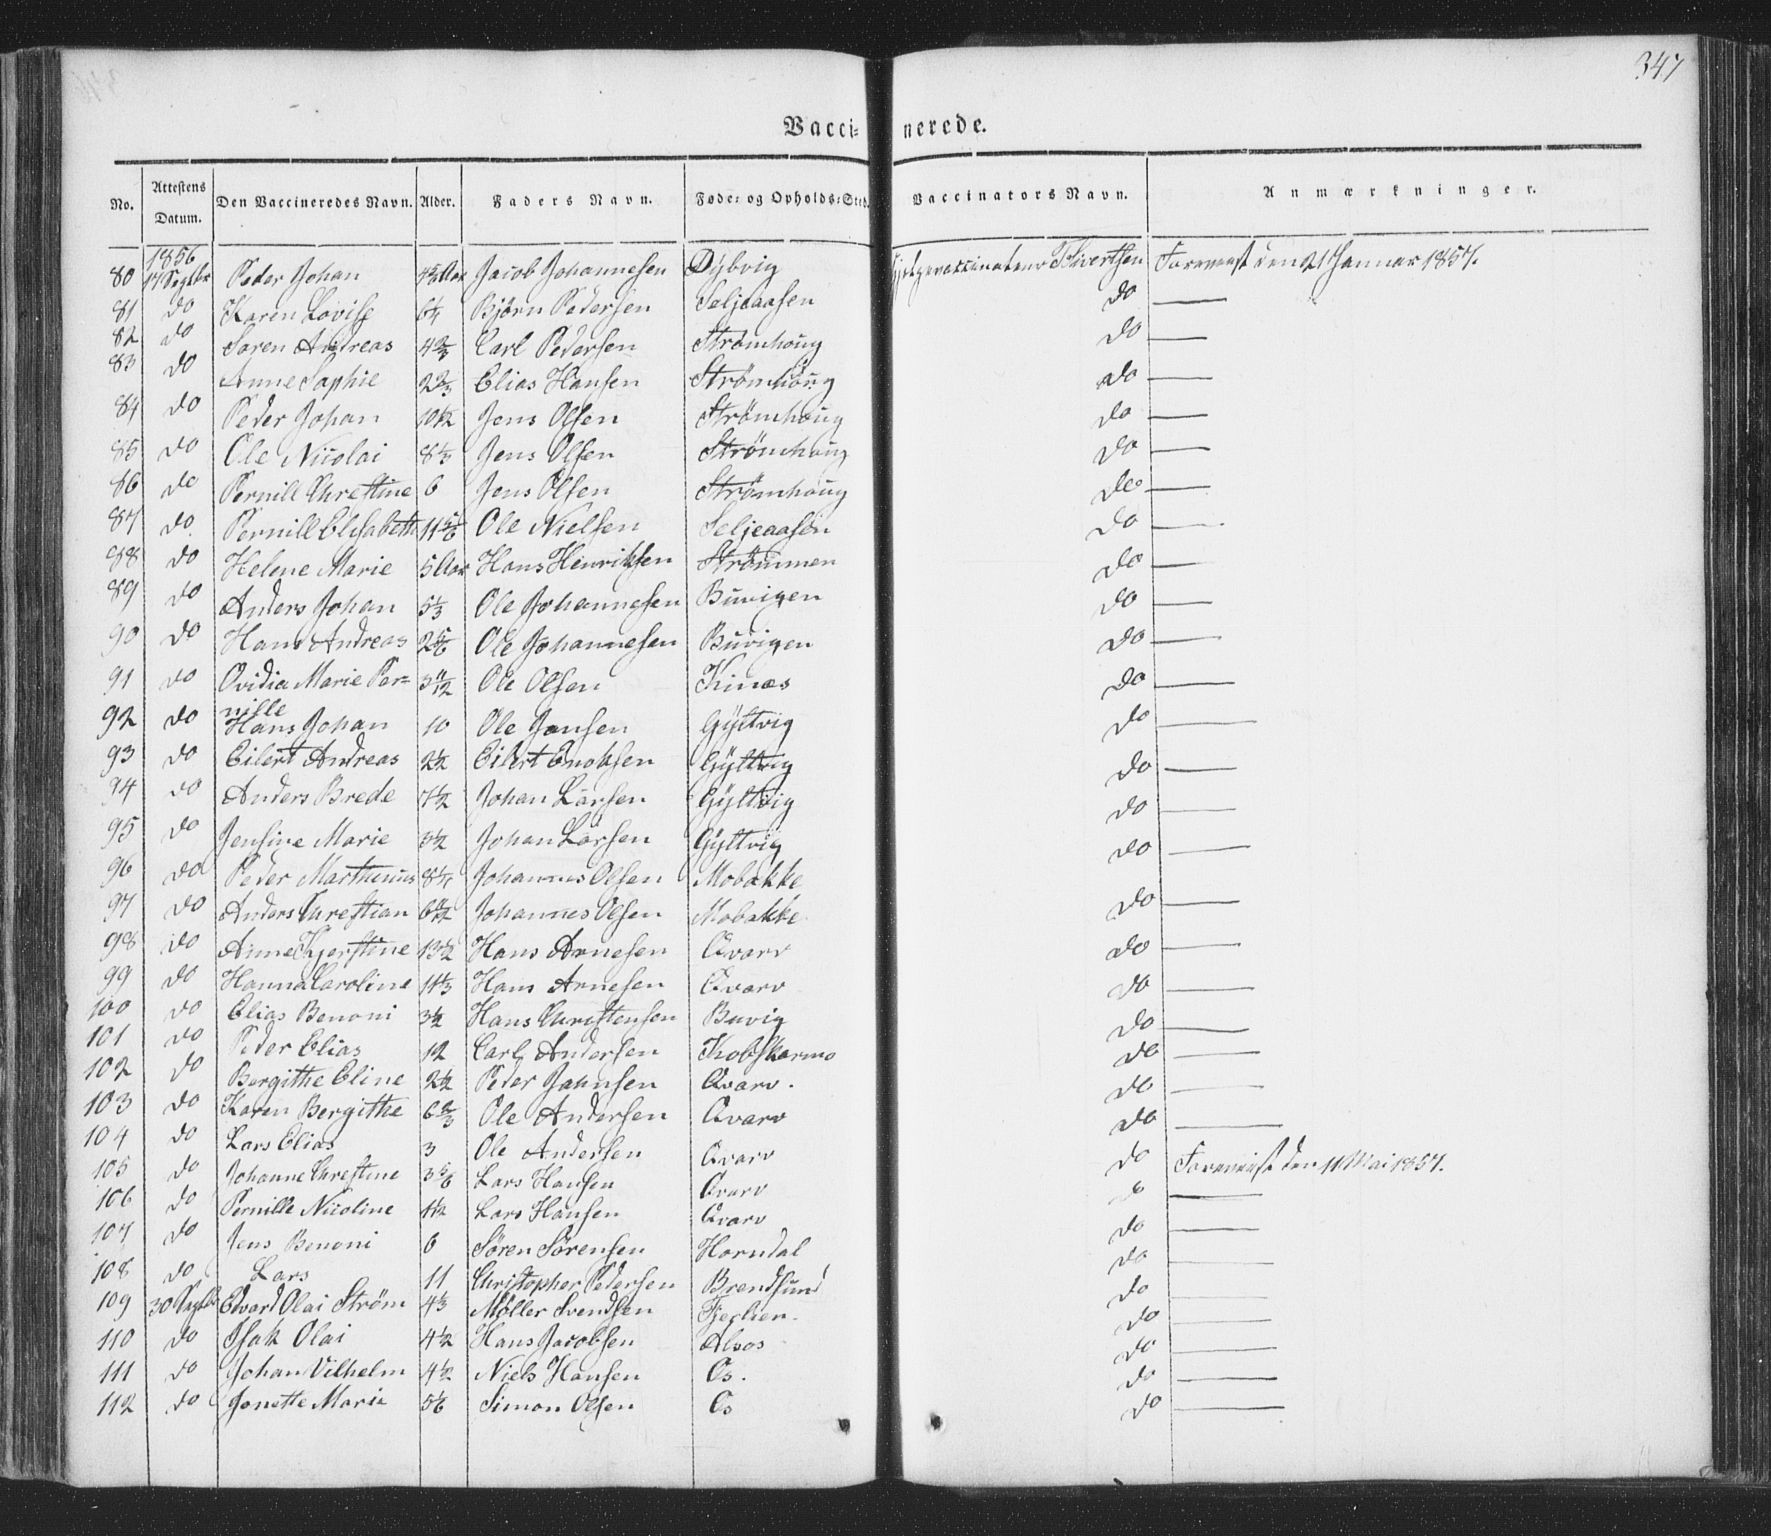 347
Vaccinerede.
No. Attestens Datum. Den Vaccineredes Navn. Alder. Faders Navn. Føde- og Opholds-Sted. Vaccinators Navn. Anmærkninger.
1856
80 17 Septbr Peder Johan Jacob Johannesen Dybvig Sivertsen Foreviist den 21 Januar 1857.
81 do Karen Lovise 6¼ Bjørn Pedersen Seljeaasen do —
82 do Søren Andreas 4⅔ Carl Pedersen Strømhoug do —
83 do Anne Sophie 2⅔ Elias Hansen Strømhoug do —
84 do Peder Johan 10½ Jens Olsen Strømhoug do —
85 do Ole Nicolai 8⅓ Jens Olsen Strømhoug do —
86 do Pernill Chrestine 6 Jens Olsen Strømhoug do —
87 do Pernill Elisabeth 11⅚ Ole Nielsen Seljeaasen do —
88 do Helene Marie 5 Aar Hans Henriksen Strømmen do —
89 do Anders Johan 5⅓ Ole Johannesen Buvigen do —
90 do Hans Andreas 2⅚ Ole Johannesen Buvigen do —
91 do Ovidia Marie Per= 3 11/12 Ole Olsen Kinæs do —
nille
92 do Hans Johan 10 Ole Jensen Gyltvig do —
93 do Eilert Andreas 2½ Eilert Enoksen Gyltvig do —
94 do Anders Brede 7½ Johan Larsen Gyltvig do —
95 do Jensine Marie 3½ Johan Larsen Gyltvig do —
96 do Peder Marthinus 8¼ Johannes Olsen Mobakke
97 do Anders Chrestian 6 11/12 Johannes Olsen Mobakke do —
98 do Anne Kjerstine 13½ Hans Arnesen Qvarv do —
99 do Hanna Caroline 11⅓ Hans Arnesen Qvarv do —
100 do Elias Benoni 3½ Hans Christensen Buvig do —
101 do Peder Elias 12 Carl Andersen Kobskarmo do —
102 do Bergithe Eline 2½ Peder Jahnsen Qvarv. do —
103 do Karen Bergithe 6⅔ Ole Andersen Qvarv do —
104 do Lars Elias 3 Ole Andersen Qvarv do Foreviist den 11 Mai 1857.
105 do Johanne Chrestine 3⅚ Lars Hansen Qvarv do —
106 do Pernille Nicoline 1½ Lars Hansen Qvarv do —
107 do Jens Benoni 6 Søren Sørensen Horndal do —
108 do Lars 11 Christopher Pedersen Brendsund do —
109 30 Septbr Edvard Olai Strøm 4⅓ Møller Svendsen do —
110 do Isak Olai 4½ Hans Jacobsen Alsos do —
111 do Johan Vilhelm 4½ Niels Hansen Os. do —
112 do Jonette Marie 5⅙ Simon Olsen Os do —